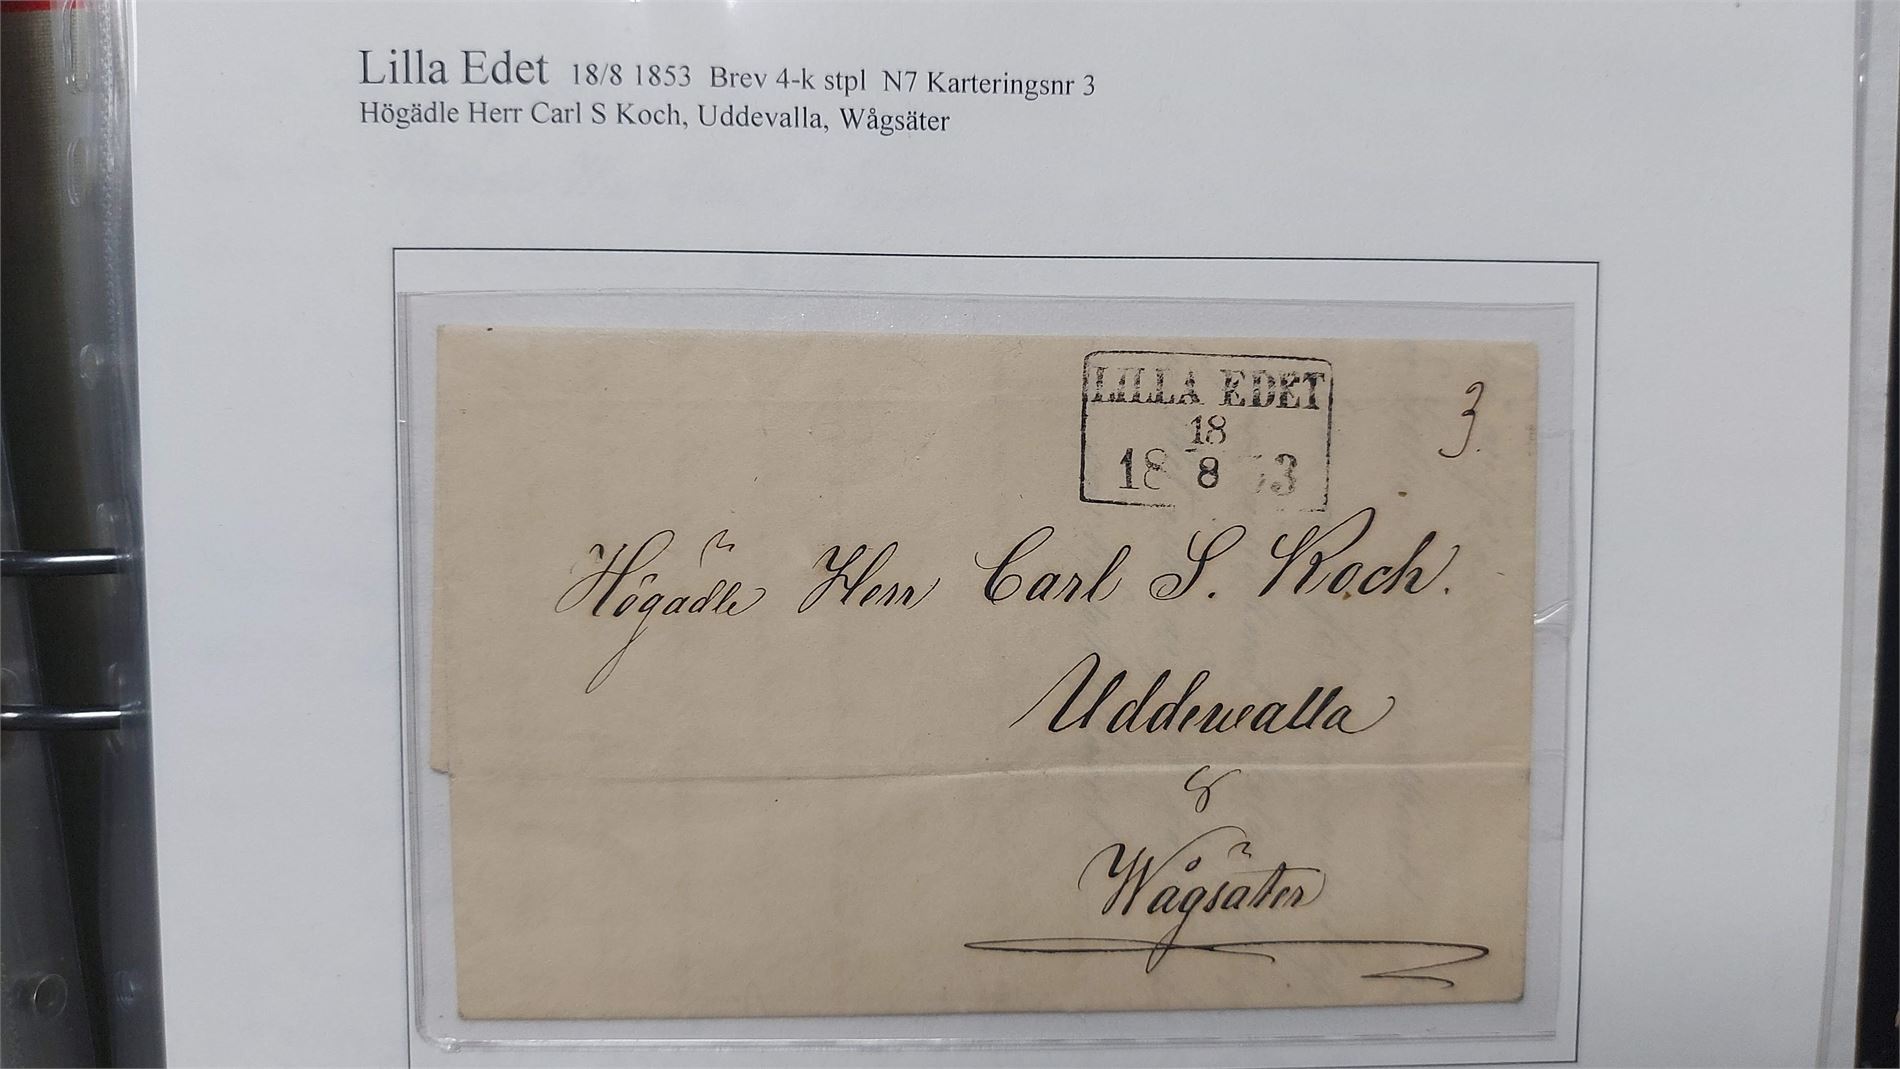 Lilla Edet 18/8 1853 Brev 4-k stpl N7 Karteringsnr 3
Högädle Herr Carl S Koch, Uddevalla, Wågsäter
LILLA EDET
18
18 8 53
3.
Högädle Herr Carl S. Koch.
Uddewalla
&
Wågsäter